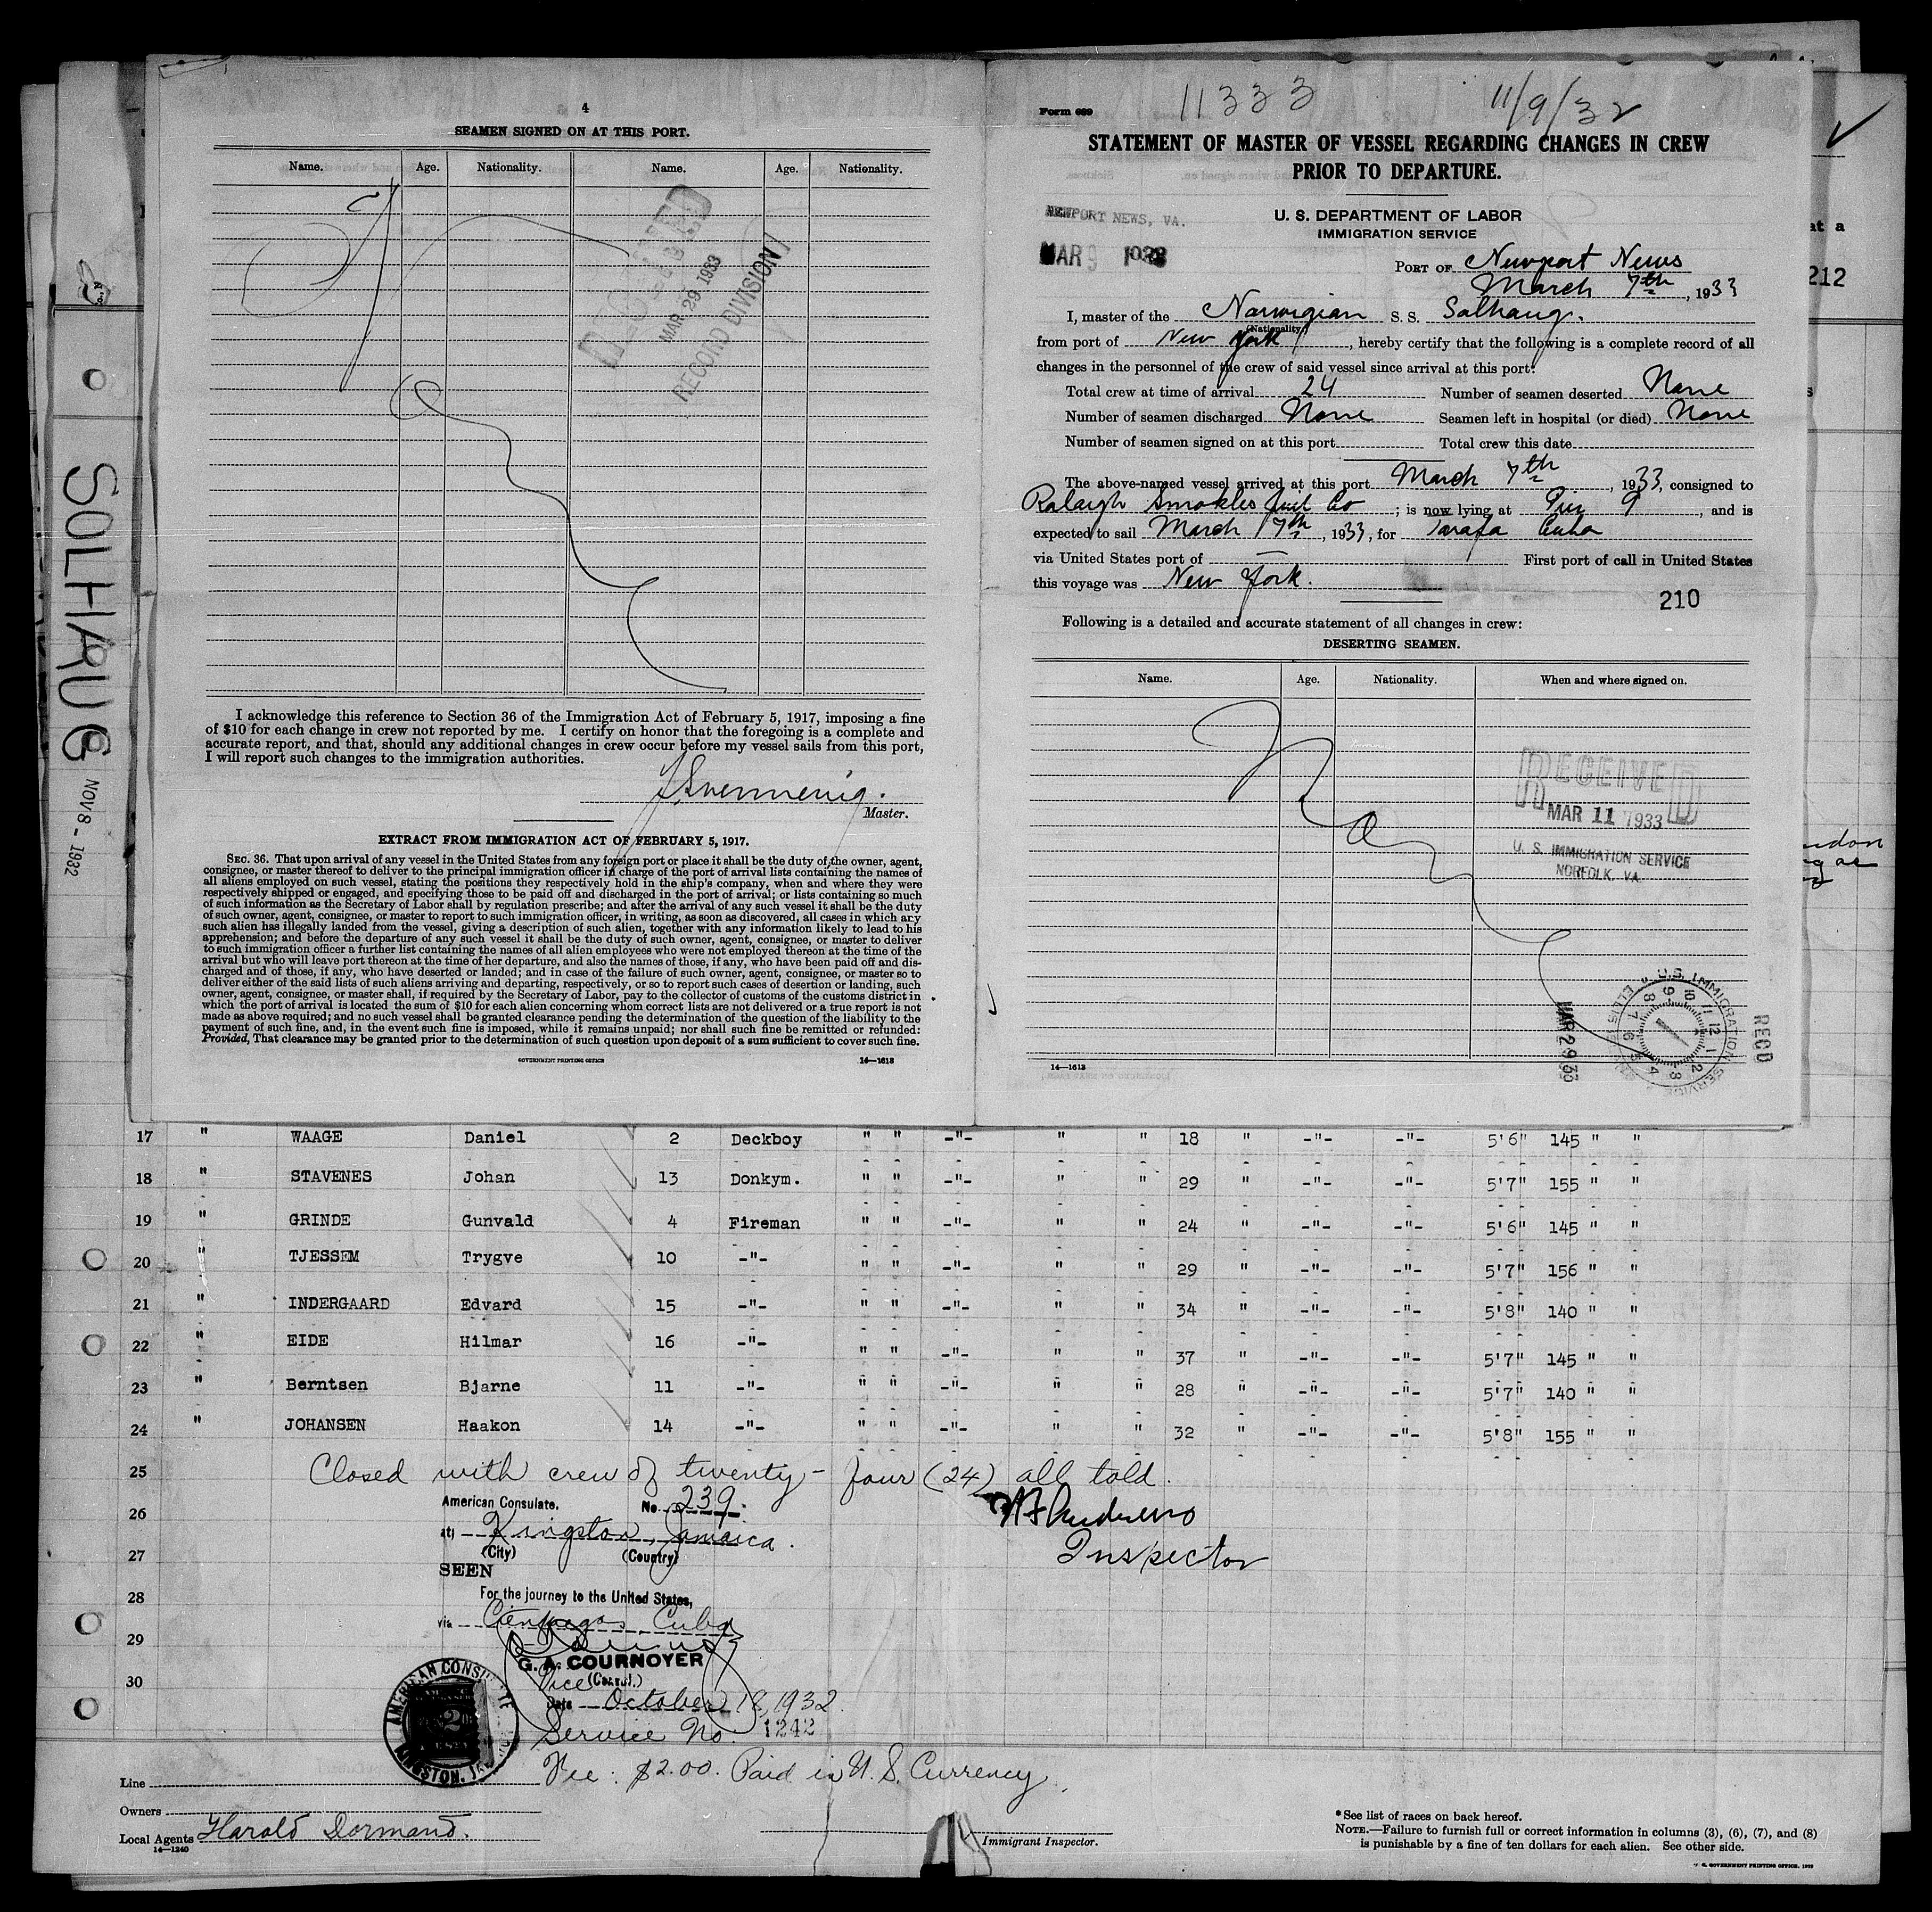 4
SEAMEN SIGNED ON AT THIS PORT.
Name. Age. Nationality. Name. Age. Nationality.
MAR 29 1933
RECORD DIVISION
I acknowledge this reference to Section 36 of the Immigration Act of February 5, 1917, imposing a fine
of $10 for each change in crew not reported by me. I certify on honor that the foregoing is a complete and
accurate report, and that, should any additional changes in crew occur before my vessel sails from this port,
I will report such changes to the immigration authorities.
Master.
EXTRACT FROM IMMIGRATION ACT OF FEBRUARY 5, 1917.
SEC. 36. That upon arrival of any vessel in the United States from any foreign port or place it shall be the duty of the owner, agent,
consignee, or master thereof to deliver to the principal immigration officer in charge of the port of arrival lists containing the names of
all aliens employed on such vessel, stating the positions they respectively hold in the ship's company, when and where they were
respectively shipped or engaged, and specifying those to be paid off and discharged in the port of arrival; or lists containing so much
of such information as the Secretary of Labor shall by regulation prescribe; and after the arrival of any such vessel it shall be the duty
of such owner, agent, consignee, or master to report to such immigration officer, in writing, as soon as discovered, all cases in which any
such alien has illegally landed from the vessel, giving a description of such alien, together with any information likely to lead to his
apprehension; and before the departure of any such vessel it shall be the duty of such owner, agent, consignee, or master to deliver
to such immigration officer a further list containing the names of all alien employees who were not employed thereon at the time of the
arrival but who will leave port thereon at the time of her departure, and also the names of those, if any, who have been paid off and dis-
charged and of those, if any, who have deserted or landed; and in case of the failure of such owner, agent, consignee, or master so to
deliver either of the said lists of such aliens arriving and departing, respectively, or so to report such cases of desertion or landing, such
owner, agent, consignee, or master shall, if required by the Secretary of Labor, pay to the collector of customs of the customs district in
which the port of arrival is located the sum of $10 for each alien concerning whom correct lists are not delivered or a true report is not
made as above required; and no such vessel shall be granted clearance pending the determination of the question of the liability to the
payment of such fine, and, in the event such fine is imposed, while it remains unpaid; nor shall such fine be remitted or refunded:
Provided, That clearance may be granted prior to the determination of such question upon deposit of a sum sufficient to cover such fine.
GOVERNMENT PRINTING OFFICE 14—1613
Form 689 11333 11/9/32
STATEMENT OF MASTER OF VESSEL REGARDING CHANGES IN CREW
PRIOR TO DEPARTURE.
U. S. DEPARTMENT OF LABOR
IMMIGRATION SERVICE
NEWPORT NEWS, VA.
MAR 9
PORT OF Newport News
March 7th, 1933
I, master of the Norwegian S. S. Solhaug.
(Nationality)
from port of New York, hereby certify that the following is a complete record of all
changes in the personnel of the crew of said vessel since arrival at this port:
Total crew at time of arrival 24 Number of seamen deserted None
Number of seamen discharged None Seamen left in hospital (or died) None
Number of seamen signed on at this port Total crew this date
The above-named vessel arrived at this port March 7th, 1933, consigned to
Raleigh Smokles Fuel Co; is now lying at Pier 9, and is
expected to sail March 17th, 1933, for Tarafa Cuba
via United States port of — First port of call in United States
this voyage was New York.
210
Following is a detailed and accurate statement of all changes in crew:
DESERTING SEAMEN.
Name. Age. Nationality. When and where signed on.
RECEIVED
MAR 11 1933
U. S. IMMIGRATION SERVICE
NORFOLK, VA.
U.S. IMMIGRATION SERVICE
RECD
14—1613
at a
212
SOLHAUG
NOV 8 - 1932
17 " WAAGE Daniel 2 Deckboy " " -"- " " 18 " -"- -"- 5'6" 145 " "
18 " STAVENES Johan 13 Donkym. " " -"- " " 29 " -"- -"- 5'7" 155 " "
19 " GRINDE Gunvald 4 Fireman " " -"- " " 24 " -"- -"- 5'6" 145 " "
20 " TJESSEM Trygve 10 -"- " " -"- " " 29 " -"- -"- 5'7" 156 " "
21 " INDERGAARD Edvard 15 -"- " " -"- " " 34 " -"- -"- 5'8" 140 " "
22 " EIDE Hilmar 16 -"- " " -"- " " 37 " -"- -"- 5'7" 145 " "
23 " Berntsen Bjarne 11 -"- " " -"- " " 28 " -"- -"- 5'7" 140 " "
24 " JOHANSEN Haakon 14 -"- " " -"- " " 32 " -"- -"- 5'8" 155 " "
25 Closed with crew of twenty-four (24) all told.
American Consulate. No. 239.
26 at Kingston, Jamaica.
27 (City) (Country)
Inspector
SEEN
28 For the journey to the United States,
via Cienfuegos, Cuba
29
G. A. COURNOYER
30 Vice (Consul.)
Date October 18, 1932.
Service No. 1242
Fee: $2.00. Paid in U.S. Currency.
Line
Owners
Local Agents Harold Dormand.
14—1240
Immigrant Inspector.
* See list of races on back hereof.
NOTE.—Failure to furnish full or correct information in columns (3), (6), (7), and (8)
is punishable by a fine of ten dollars for each alien. See other side.